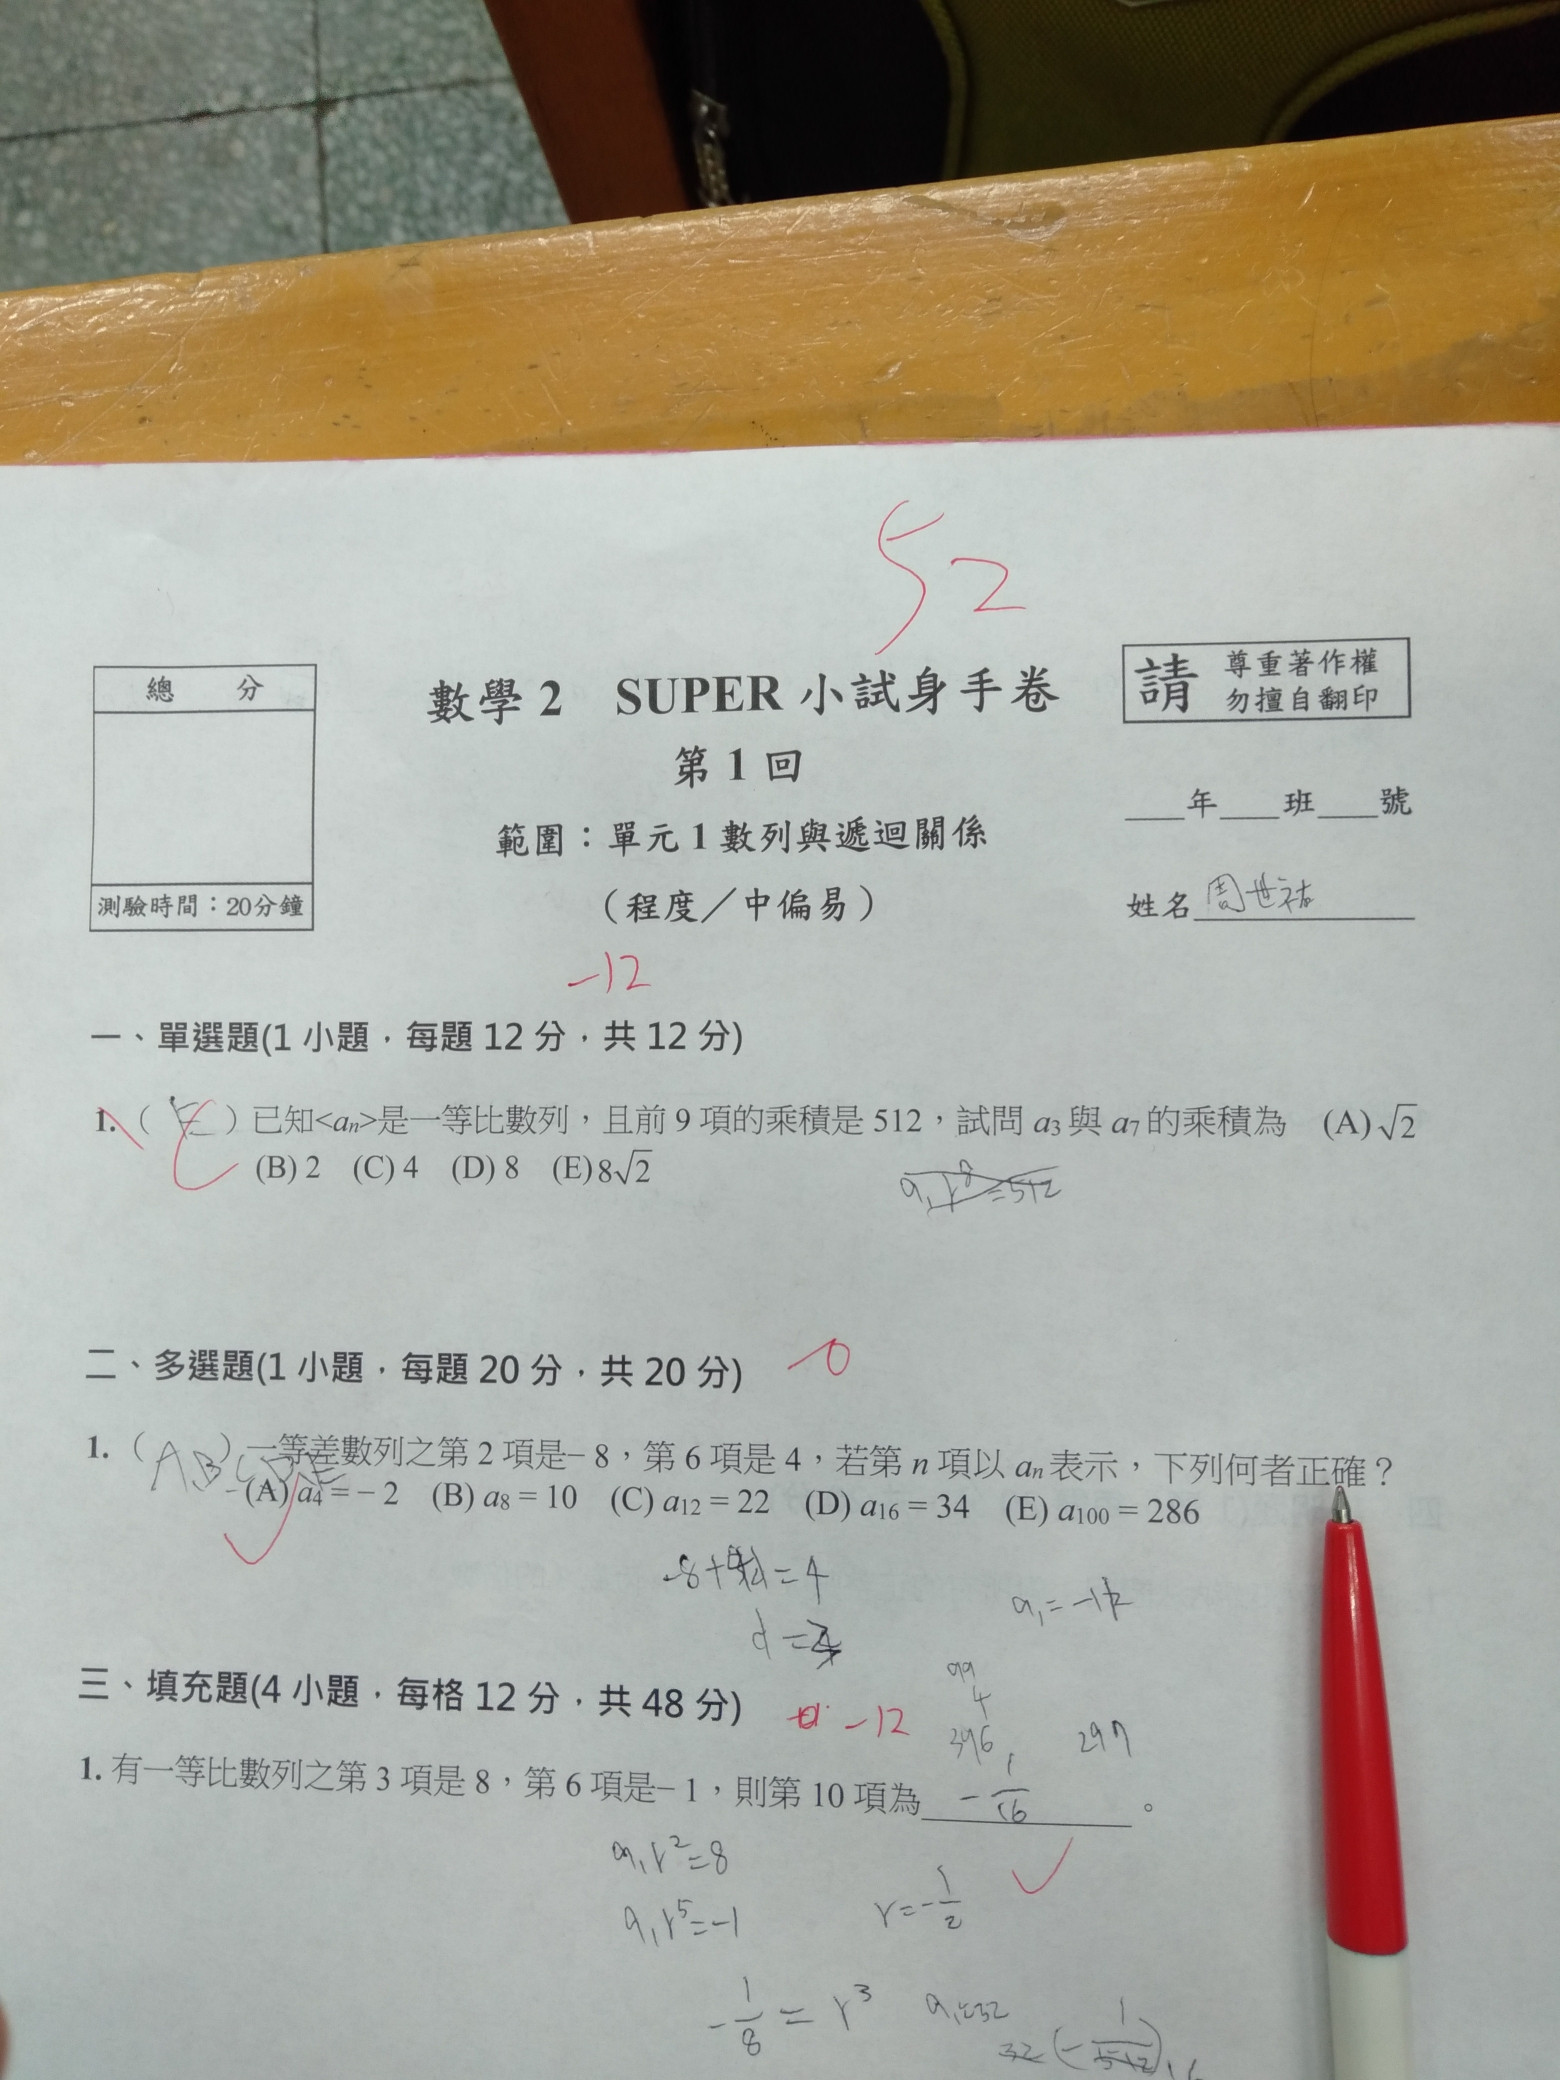 52
總 分
測驗時間：20分鐘
數學 2 SUPER 小試身手卷
第 1 回
範圍：單元 1 數列與遞迴關係
（程度／中偏易）
請 尊重著作權
勿擅自翻印
___年___班___號
姓名 周世祐
-12
一、單選題(1 小題，每題 12 分，共 12 分)
1.（ E ）已知<an>是一等比數列，且前 9 項的乘積是 512，試問 a3 與 a7 的乘積為 (A)√2
(B) 2 (C) 4 (D) 8 (E)8√2
C
-0
二、多選題(1 小題，每題 20 分，共 20 分)
1.（ABCDE）一等差數列之第 2 項是−8，第 6 項是 4，若第 n 項以 an 表示，下列何者正確？
(A) a4 = −2 (B) a8 = 10 (C) a12 = 22 (D) a16 = 34 (E) a100 = 286
-8+4d=4
三、填充題(4 小題，每格 12 分，共 48 分)
-12
99
4
396
297
1. 有一等比數列之第 3 項是 8，第 6 項是−1，則第 10 項為 -1/16 。
a1r²=8
a1r⁵=-1
r=-1/2
-1/8=r³
a1=32